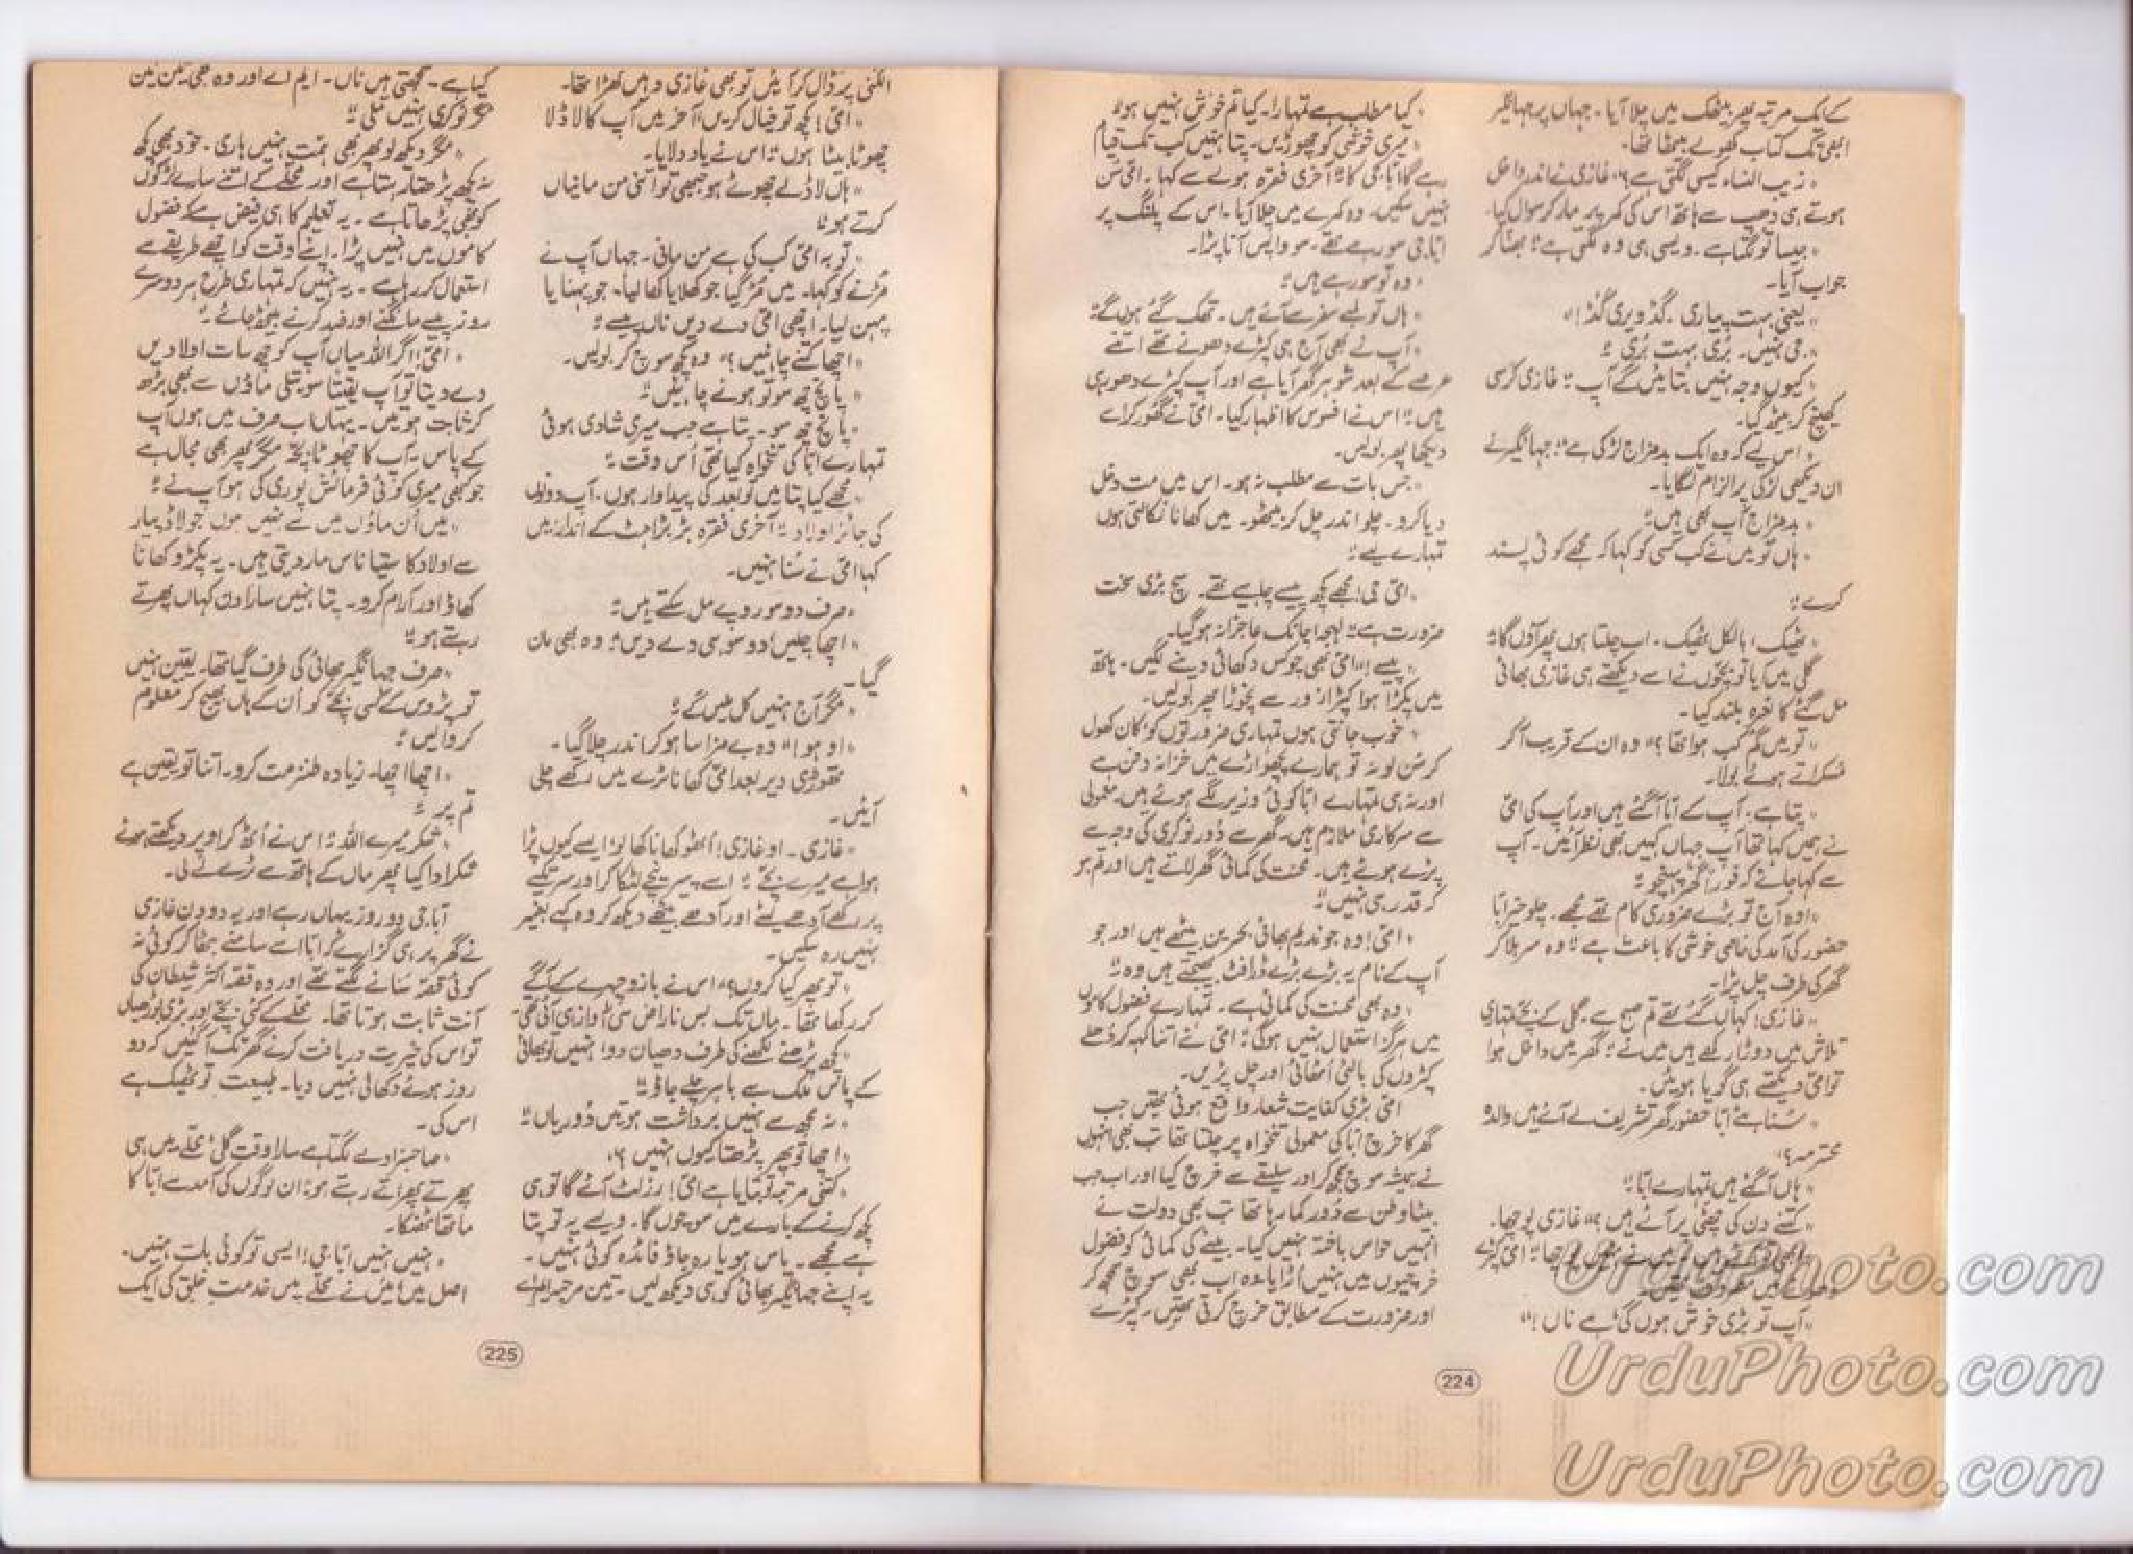 کے ایک مرتبہ پھر بیٹھک میں چلا آیا۔ جہاں پر جہانگیر
ابھی تک کتاب کھولے بیٹھا تھا۔
"زیب النساء کیسی لگتی ہے؟" غازی نے اندر داخل
ہوتے ہی دھپ سے ہاتھ اس کی کمر پر مار کر سوال کیا۔
"جیسا تو لگتا ہے۔ ویسی ہی وہ لگتی ہے" بھنا کر
جواب آیا۔
"یعنی بہت پیاری۔ گڈ ویری گڈ!"
"جی نہیں۔ بُری بہت بُری"
"کیوں وجہ نہیں بتائیں گے آپ" غازی کرسی
کھینچ کر بیٹھ گیا۔
"اس لیے کہ وہ ایک بدمزاج لڑکی ہے" جہانگیر نے
ان دیکھی لڑکی پر الزام لگایا۔
"بدمزاج آپ بھی ہیں"
"ہاں تو میں نے کب کسی کو کہا کہ مجھے کوئی پسند
کرے"
"ٹھیک، بالکل ٹھیک۔ اب چلتا ہوں پھر آؤں گا"
گلی میں آیا تو بچوں نے اسے دیکھتے ہی غازی بھائی
مل گئے کا نعرہ بلند کیا۔
"تو میں گم کب ہوا تھا؟" وہ ان کے قریب آ کر
مسکراتے ہوئے بولا۔
"پتا ہے، آپ کے ابا آ گئے ہیں اور آپ کی امی
نے ہمیں کہا تھا آپ جہاں کہیں بھی نظر آئیں۔ آپ
سے کہا جائے کہ فوراً گھر پہنچو"
"اوہ آج تو بڑے ضروری کام تھے مجھے۔ چلو خیر ابا
حضور کی آمد کی خاصی خوشی کا باعث ہے" وہ سر ہلا کر
گھر کی طرف چل پڑا۔
"غازی! کہاں گئے تھے تم صبح سے، گلی کے بچے تمہاری
تلاش میں دوڑا رکھے ہیں میں نے" گھر میں داخل ہوا
تو امی دیکھتے ہی گویا ہوئیں۔
"سُنا ہے ابا حضور گھر تشریف لے آئے ہیں والدہ
محترمہ؟"
"ہاں آ گئے ہیں تمہارے ابا"
"کتنے دن کی چھٹی پر آئے ہیں؟" غازی پوچھا۔
"ابھی تو آئے ہیں میں نے نہیں پوچھا" امی کپڑے
دھونے میں مصروف تھیں۔
"آپ تو بڑی خوش ہوں گی ہے ناں!"
"کیا مطلب ہے تمہارا۔ کیا تم خوش نہیں ہو"
"میری خوشی کو چھوڑیں۔ پتا نہیں کب تک قیام
رہے گا ابا جی کا" آخری فقرہ ہولے سے کہا۔ امی سن
نہیں سکیں۔ وہ کمرے میں چلا آیا۔ اس کے پلنگ پر
ابا جی سو رہے تھے۔ سو واپس آنا پڑا۔
"وہ تو سو رہے ہیں"
"ہاں تو لمبے سفر سے آئے ہیں۔ تھک گئے ہوں گے"
"آپ نے بھی آج ہی کپڑے دھونے تھے اتنے
عرصے کے بعد شوہر گھر آیا ہے اور آپ کپڑے دھو رہی
ہیں" اس نے افسوس کا اظہار کیا۔ امی نے گھور کر اسے
دیکھا پھر بولیں۔
"جس بات سے مطلب نہ ہو۔ اس میں مت دخل
دیا کرو۔ چلو اندر چل کر بیٹھو۔ میں کھانا نکالتی ہوں
تمہارے لیے"
"امی جی! مجھے کچھ پیسے چاہیے تھے۔ سچ بڑی سخت
ضرورت ہے" لہجہ اچانک عاجزانہ ہو گیا۔
"پیسے!" امی بھی چوکس دکھائی دینے لگیں۔ ہاتھ
میں پکڑا ہوا کپڑا زور سے نچوڑا پھر بولیں۔
"خوب جانتی ہوں تمہاری ضرورتوں کو، کان کھول
کر سُن لو نہ تو ہمارے پچھواڑے میں خزانہ دفن ہے
اور نہ ہی تمہارے ابا کوئی وزیر لگے ہوئے ہیں۔ معمولی
سے سرکاری ملازم ہیں۔ گھر سے دُور نوکری کی وجہ سے
پڑے ہوئے ہیں۔ محنت کی کمائی گھر لاتے ہیں اور تم ہو
کہ قدر ہی نہیں"
"امی! وہ جو ندیم بھائی بحرین بیٹھے ہیں اور جو
آپ کے نام یہ بڑے بڑے ڈرافٹ بھیجتے ہیں وہ"
"وہ بھی محنت کی کمائی ہے۔ تمہارے فضول کاموں
میں ہرگز استعمال نہیں ہوگی" امی نے اتنا کہہ کر دُھلے
کپڑوں کی بالٹی اُٹھائی اور چل پڑیں۔
امی بڑی کفایت شعار واقع ہوئی تھیں جب
گھر کا خرچ ابا کی معمولی تنخواہ پر چلتا تھا تب بھی انہوں
نے ہمیشہ سوچ سمجھ کر اور سلیقے سے خرچ کیا اور اب جب
بیٹا وطن سے دُور کما رہا تھا تب بھی دولت نے
انہیں حواس باختہ نہیں کیا۔ بیٹے کی کمائی کو فضول
خرچیوں میں نہیں اُڑایا۔ وہ اب بھی سوچ سمجھ کر
اور ضرورت کے مطابق خرچ کرتی تھیں۔ کپڑے
224
الگنی پر ڈال کر آئیں تو بھی غازی وہیں کھڑا تھا۔
"امی! کچھ تو خیال کریں، آخر میں آپ کا لاڈلا
چھوٹا بیٹا ہوں" اس نے یاد دلایا۔
"ہاں لاڈلے چھوٹے ہو جبھی تو اتنی من مانیاں
کرتے ہو"
"توبہ امی کب کی ہے من مانی۔ جہاں آپ نے
مُڑنے کو کہا۔ میں مُڑ گیا جو کھلایا کھا لیا۔ جو پہنایا
پہن لیا۔ اچھی امی دے دیں ناں پیسے"
"اچھا کتنے چاہئیں؟" وہ کچھ سوچ کر بولیں۔
"پانچ چھ سو تو ہونے چاہئیں"
"پانچ چھ سو۔ پتا ہے جب میری شادی ہوئی
تمہارے ابا کی تنخواہ کیا تھی اُس وقت"
"مجھے کیا پتا میں تو بعد کی پیداوار ہوں۔ آپ دونوں
کی جائز اولاد" آخری فقرہ بڑبڑاہٹ کے انداز میں
کہا امی نے سُنا نہیں۔
"صرف دو سو روپے مل سکتے ہیں"
"اچھا چلیں! دو سو ہی دے دیں" وہ بھی مان
گیا۔
"مگر آج نہیں کل ملیں گے"
"اوہو!" وہ بے مزا سا ہو کر اندر چلا گیا۔
تھوڑی دیر بعد امی کھانا ٹرے میں رکھے چلی
آئیں۔
"غازی۔ او غازی! اُٹھو کھانا کھا لو، ایسے کیوں پڑا
ہوا ہے میرے بچے" اسے پیر نیچے لٹکا کر اور سر تکیے
پر رکھے آدھے لیٹے اور آدھے بیٹھے دیکھ کر وہ کہے بغیر
نہیں رہ سکیں۔
"تو پھر کیا کروں؟" اس نے بازو چہرے کے آگے
کر رکھا تھا۔ ماں تک بس ناراض سی آواز ہی آئی تھی۔
"کچھ پڑھنے لکھنے کی طرف دھیان دو! نہیں تو بھائی
کے پاس ملک سے باہر چلے جاؤ"
"نہ مجھ سے نہیں برداشت ہوتیں دُوریاں"
"اچھا تو پھر پڑھتا کیوں نہیں؟"
"کتنی مرتبہ تو بتایا ہے امی! رزلٹ آئے گا تو ہی
کچھ کرنے کے بارے میں سوچوں گا۔ ویسے یہ تو پتا
ہے مجھے۔ پاس ہو یا رہ جاؤ فائدہ کوئی نہیں۔
یہ اپنے جہانگیر بھائی کو ہی دیکھ لیں۔ تین مرتبہ ایم اے
کیا ہے۔ سمجھتی ہیں ناں۔ ایم اے اور وہ بھی تین تین
مگر نوکری نہیں ملی"
"مگر دیکھ لو پھر بھی ہمت نہیں ہاری۔ خود بھی کچھ
نہ کچھ پڑھتا رہتا ہے اور محلے کے اتنے سارے لڑکوں
کو بھی پڑھاتا ہے۔ یہ تعلیم کا ہی فیض ہے کہ فضول
کاموں میں نہیں پڑا۔ اپنے وقت کو اچھے طریقے سے
استعمال کر رہا ہے۔ یہ نہیں کہ تمہاری طرح ہر دوسرے
روز پیسے مانگنے اور ضد کرنے بیٹھ جائے"
"امی! اگر اللہ میاں آپ کو چھ سات اولادیں
دے دیتا تو آپ یقیناً سوتیلی ماؤں سے بھی بڑھ
کر ثابت ہوتیں۔ یہاں اب صرف میں ہوں آپ
کے پاس۔ آپ کا چھوٹا بچہ مگر پھر بھی مجال ہے
جو کبھی میری کوئی فرمائش پوری کی ہو آپ نے"
"میں اُن ماؤں میں سے نہیں ہوں جو لاڈ پیار
سے اولاد کا ستیاناس مار دیتی ہیں۔ یہ پکڑو کھانا
کھاؤ اور آرام کرو۔ پتا نہیں سارا دن کہاں پھرتے
رہتے ہو"
"صرف جہانگیر بھائی کی طرف گیا تھا۔ یقین نہیں
تو پڑوس کے کسی بچے کو اُن کے ہاں بھیج کر معلوم
کروا لیں"
"اچھا اچھا۔ زیادہ طنز مت کرو۔ اتنا تو یقین ہے
تم پر"
"شکر میرے اللہ" اس نے اُٹھ کر اوپر دیکھتے ہوئے
شکر ادا کیا پھر ماں کے ہاتھ سے ٹرے لے لی۔
ابا جی دو روز یہاں رہے اور یہ دو دن غازی
نے گھر پر ہی گزارے کہ ابا اسے سامنے بٹھا کر کوئی نہ
کوئی قصہ سُنانے لگتے تھے اور وہ قصہ اکثر شیطان کی
آنت ثابت ہوتا تھا۔ محلے کے کئی بچے اور بڑی بوڑھیاں
تو اس کی خیریت دریافت کرنے گھر تک آ گئیں کہ دو
روز ہوئے دکھائی نہیں دیا۔ طبیعت تو ٹھیک ہے
اس کی۔
"صاحبزادے لگتا ہے سارا وقت گلی محلے میں ہی
پھرتے پھراتے رہتے ہو" ان لوگوں کی آمد سے ابا کا
ماتھا ٹھنکا۔
"نہیں نہیں ابا جی! ایسی تو کوئی بات نہیں۔
اصل میں! میں نے محلے میں خدمتِ خلق کی ایک
225
UrduPhoto.com
UrduPhoto.com
UrduPhoto.com